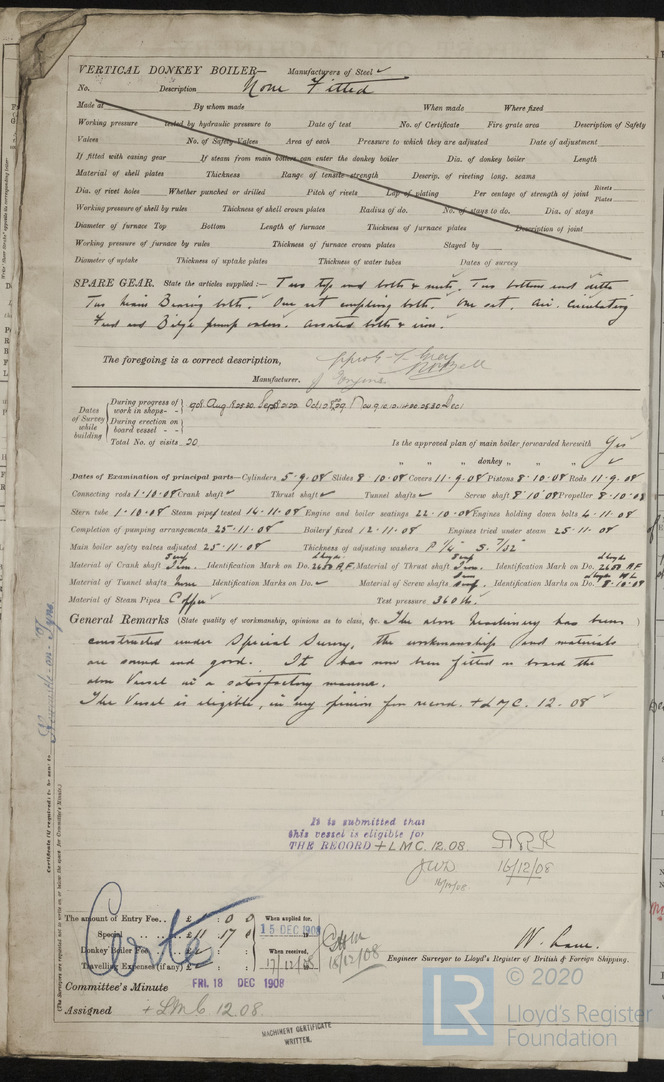 VERTICAL DONKEY BOILER— Manufacturers of Steel
No. Description None Fitted
Made at By whom made When made Where fixed
Working pressure tested by hydraulic pressure to Date of test No. of Certificate Fire grate area Description of Safety
Valves No. of Safety Valves Area of each Pressure to which they are adjusted Date of adjustment
If fitted with easing gear If steam from main boilers can enter the donkey boiler Dia. of donkey boiler Length
Material of shell plates Thickness Range of tensile strength Descrip. of riveting long. seams
Dia. of rivet holes Whether punched or drilled Pitch of rivets Lap of plating Per centage of strength of joint Rivets Plates
Working pressure of shell by rules Thickness of shell crown plates Radius of do. No. of stays to do. Dia. of stays
Diameter of furnace Top Bottom Length of furnace Thickness of furnace plates Description of joint
Working pressure of furnace by rules Thickness of furnace crown plates Stayed by
Diameter of uptake Thickness of uptake plates Thickness of water tubes Dates of survey
SPARE GEAR. State the articles supplied:— Two top end bolts & nuts. Two bottom end ditto
Two main Bearing bolts. One set coupling bolts. One set. Air. Circulating
Feed and Bilge pump valves. Assorted bolts & iron.
The foregoing is a correct description,
Manufacturer.
Dates of Survey while building
During progress of work in shops - -
During erection on board vessel - -
Total No. of visits 20
Is the approved plan of main boiler forwarded herewith Yes
" " " donkey " "
Dates of Examination of principal parts—Cylinders 5.9.08 Slides 8.10.08 Covers 11.9.08 Pistons 8.10.08 Rods 11.9.08
Connecting rods 1.10.08 Crank shaft Thrust shaft Tunnel shafts Screw shaft 8.10.08 Propeller 8.10.08
Stern tube 1.10.08 Steam pipes tested 14.11.08 Engine and boiler seatings 22.10.08 Engines holding down bolts 4.11.08
Completion of pumping arrangements 25.11.08 Boilers fixed 12.11.08 Engines tried under steam 25.11.08
Main boiler safety valves adjusted 25.11.08 Thickness of adjusting washers P 1/4" S. 7/32"
Material of Crank shaft Iron. Identification Mark on Do. Lloyds 2680 A.F. Material of Thrust shaft Iron. Identification Mark on Do. Lloyds 2680 A.F
Material of Tunnel shafts None Identification Marks on Do. Material of Screw shafts Identification Marks on Do. 8.10.08
Material of Steam Pipes Copper Test pressure 360 lb.
General Remarks (State quality of workmanship, opinions as to class, &c. The above Machinery has been
constructed under Special Survey, the workmanship and materials
are sound and good. It has now been fitted on board the
above Vessel in a satisfactory manner.
The Vessel is eligible, in my opinion for record. + LMC. 12.08
It is submitted that
this vessel is eligible for
THE RECORD + LMC. 12.08
16/12/08
16/12/08
The amount of Entry Fee.. £ : 0 0 When applied for,
Special .. .. .. £ 11 : 17 6 15 DEC 1908
Donkey Boiler Fee .. £ When received,
Travelling Expenses (if any) £ 17/12/08
18/12/08
W. Lane.
Engineer Surveyor to Lloyd's Register of British & Foreign Shipping.
Committee's Minute FRI. 18 DEC 1908
Assigned + LMC 12.08.
MACHINERY CERTIFICATE
WRITTEN.
Newcastle-on-Tyne.
Certificate (if required) to be sent to
(The Surveyors are requested not to write on or below the space for Committee's Minute.)
© 2020
LR
Lloyd's Register
Foundation